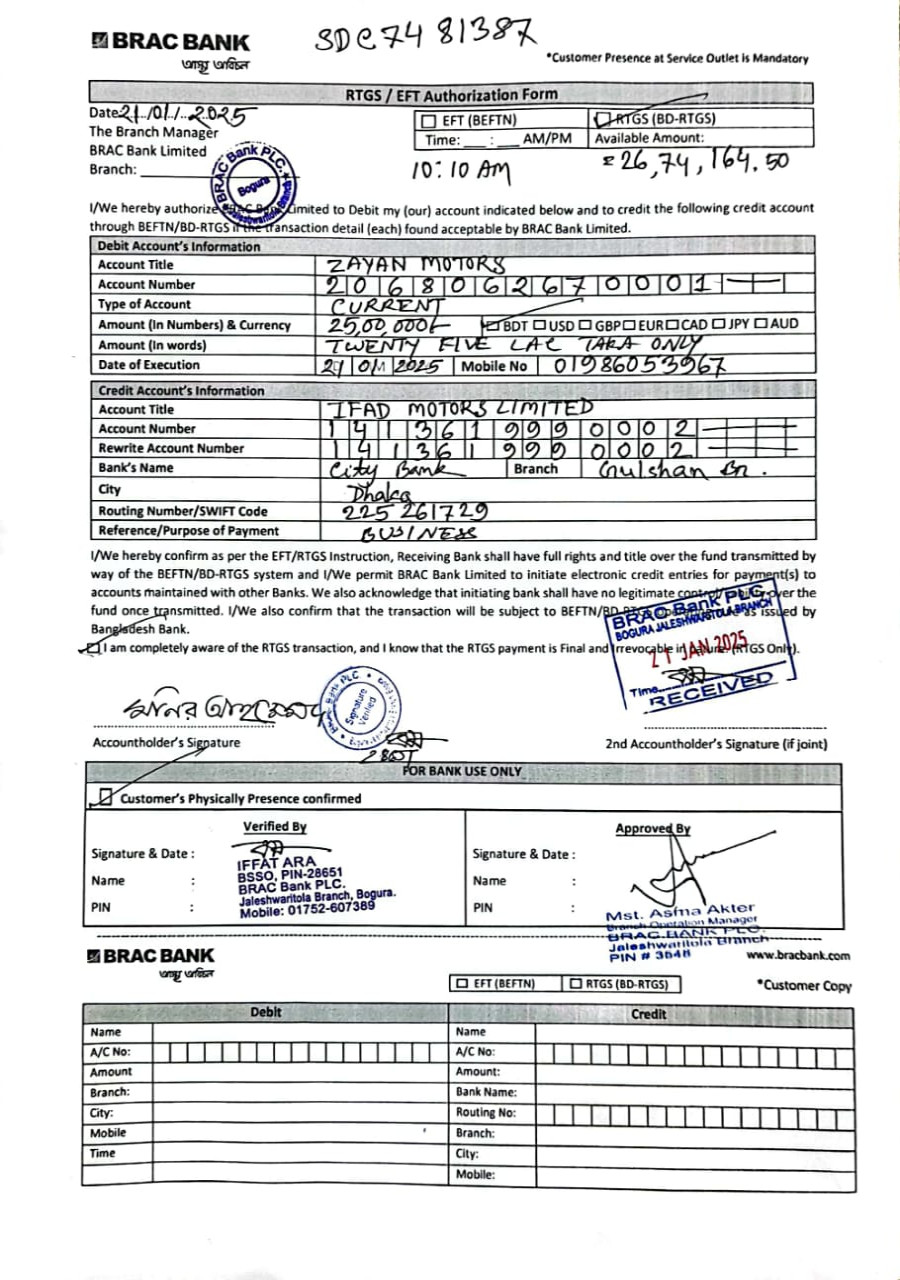 BRAC BANK
SDC74 81387
*Customer Presence at Service Outlet is Mandatory
RTGS / EFT Authorization Form
Date 21/01/2025
The Branch Manager
BRAC Bank Limited
Branch:
EFT (BEFTN)
RTGS (BD-RTGS)
Time: : AM/PM
Available Amount:
10:10 AM
= 26,74,164.50
BRAC Bank PLC.
Bogura
Jaleshwaritola Branch
I/We hereby authorize BRAC Bank Limited to Debit my (our) account indicated below and to credit the following credit account
through BEFTN/BD-RTGS if the transaction detail (each) found acceptable by BRAC Bank Limited.
Debit Account's Information
Account Title ZAYAN MOTORS
Account Number 2068062670001
Type of Account CURRENT
Amount (In Numbers) & Currency 25,00,000/- BDT USD GBP EUR CAD JPY AUD
Amount (In words) TWENTY FIVE LAC TAKA ONLY
Date of Execution 21 01 2025 Mobile No 01986053967
Credit Account's Information
Account Title IFAD MOTORS LIMITED
Account Number 1 41 361 999 0002
Rewrite Account Number 1 41 361 999 0002
Bank's Name City Bank Branch Gulshan Br.
City Dhaka
Routing Number/SWIFT Code 225 261729
Reference/Purpose of Payment BUSINESS
I/We hereby confirm as per the EFT/RTGS Instruction, Receiving Bank shall have full rights and title over the fund transmitted by
way of the BEFTN/BD-RTGS system and I/We permit BRAC Bank Limited to initiate electronic credit entries for payment(s) to
accounts maintained with other Banks. We also acknowledge that initiating bank shall have no legitimate control over the
fund once transmitted. I/We also confirm that the transaction will be subject to BEFTN/BD-RTGS as issued by
Bangladesh Bank.
I am completely aware of the RTGS transaction, and I know that the RTGS payment is Final and Irrevocable in (RTGS Only).
BRAC Bank PLC.
BOGURA JALESHWARITOLA BRANCH
21 JAN 2025
Time
RECEIVED
Signature
Verified
Accountholder's Signature
2nd Accountholder's Signature (if joint)
FOR BANK USE ONLY
Customer's Physically Presence confirmed
Verified By
Approved By
Signature & Date :
Signature & Date :
Name :
Name :
PIN :
PIN :
IFFAT ARA
BSSO, PIN-28651
BRAC Bank PLC.
Jaleshwaritola Branch, Bogura.
Mobile: 01752-607389
Mst. Asma Akter
Branch Operation Manager
BRAC BANK PLC.
Jaleshwaritola Branch
PIN # 3648
BRAC BANK
www.bracbank.com
EFT (BEFTN) RTGS (BD-RTGS)
*Customer Copy
Debit Credit
Name Name
A/C No: A/C No:
Amount Amount:
Branch: Bank Name:
City: Routing No:
Mobile Branch:
Time City:
Mobile: